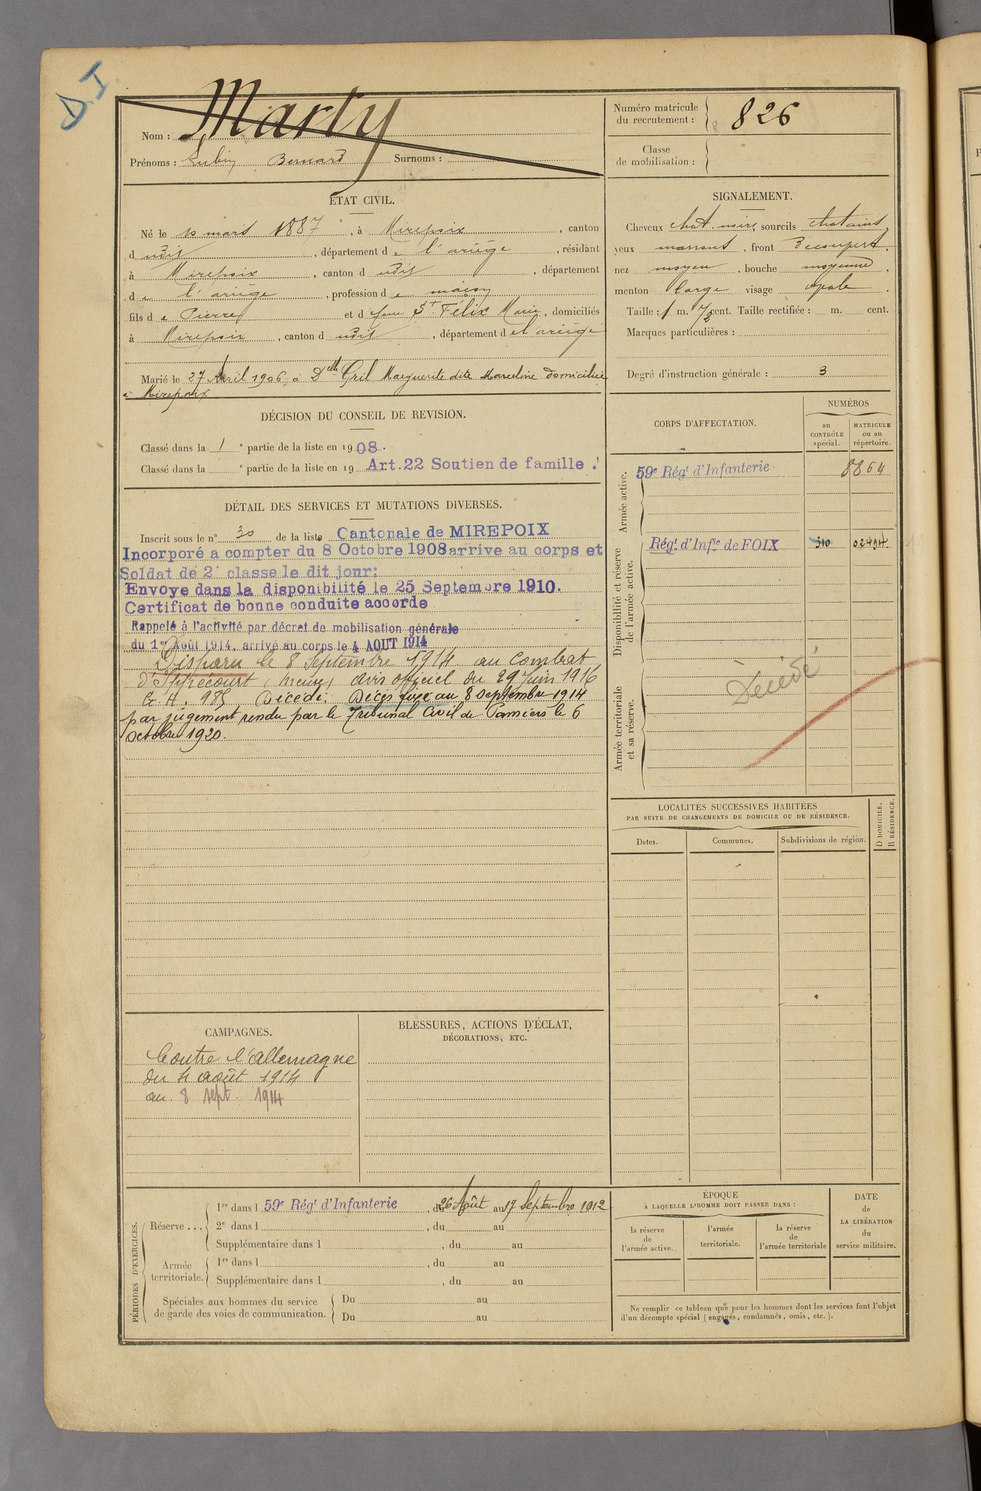 D.I
Nom : Marty
Prénoms : Lubin Bernard Surnoms :
Numéro matricule du recrutement : 826
Classe de mobilisation :
ÉTAT CIVIL.
Né le 10 mars 1887, à Mirepoix, canton
dudit, département de l'ariège, résidant
à Mirepoix, canton dudit, département
de l'ariège, profession de maçon
fils de Pierre et de feue St Félix Marie, domiciliés
à Mirepoix, canton dudit, département de l'ariège
Marié le 27 Avril 1906 à Delle Gril Marguerite dite Marceline domiciliée
à Mirepoix
DÉCISION DU CONSEIL DE REVISION.
Classé dans la 1 e partie de la liste en 1908.
Classé dans la e partie de la liste en 19 Art.22 Soutien de famille.
DÉTAIL DES SERVICES ET MUTATIONS DIVERSES.
Inscrit sous le n° 30 de la liste Cantonale de MIREPOIX
Incorporé a compter du 8 Octobre 1908 arrive au corps et
Soldat de 2e classe le dit jour:
Envoye dans la disponibilité le 25 Septembre 1910.
Certificat de bonne conduite accorde
Rappelé à l'activité par décret de mobilisation générale
du 1er Août 1914, arrivé au corps le 4 AOUT 1914
Disparu le 8 Septembre 1914 au Combat
(Meuse) avis officiel du 29 Juin 1916
985 Décédé. Décès fixé au 8 septembre 1914
par jugement rendu par le Tribunal Civil de Pamiers le 6
octobre 1920.
SIGNALEMENT.
Cheveux chat. noirs, sourcils chatains
yeux marrons, front Découvert,
nez moyen, bouche moyenne,
menton large visage ovale
Taille : 1 m. cent. Taille rectifiée : m. cent.
Marques particulières :
Degré d'instruction générale : 3
CORPS D'AFFECTATION.
NUMÉROS
au CONTRÔLE spécial.
MATRICULE ou au répertoire.
Armée active.
59e Régt d'Infanterie 8864
Disponibilité et réserve de l'armée active.
Régt d'Infie de FOIX 310
Armée territoriale et sa réserve.
Décédé
LOCALITÉS SUCCESSIVES HABITÉES
PAR SUITE DE CHANGEMENTS DE DOMICILE OU DE RÉSIDENCE.
Dates. Communes. Subdivisions de région. D DOMICILE. R RÉSIDENCE.
CAMPAGNES.
Contre l'allemagne
du 4 août 1914
au 8 sept. 1914
BLESSURES, ACTIONS D'ÉCLAT,
DÉCORATIONS, ETC.
PÉRIODES D'EXERCICES.
Réserve ...
1re dans l 59e Régt d'Infanterie, du 26 Août au 17 Septembre 1912
2e dans l , du au
Supplémentaire dans l , du au
Armée territoriale.
1re dans l , du au
Supplémentaire dans l , du au
Spéciales aux hommes du service de garde des voies de communication.
Du au
Du au
ÉPOQUE
À LAQUELLE L'HOMME DOIT PASSER DANS :
la réserve de l'armée active.
l'armée territoriale.
la réserve de l'armée territoriale
DATE de LA LIBÉRATION du service militaire.
Ne remplir ce tableau que pour les hommes dont les services font l'objet
d'un décompte spécial (engagés, condamnés, omis, etc.).